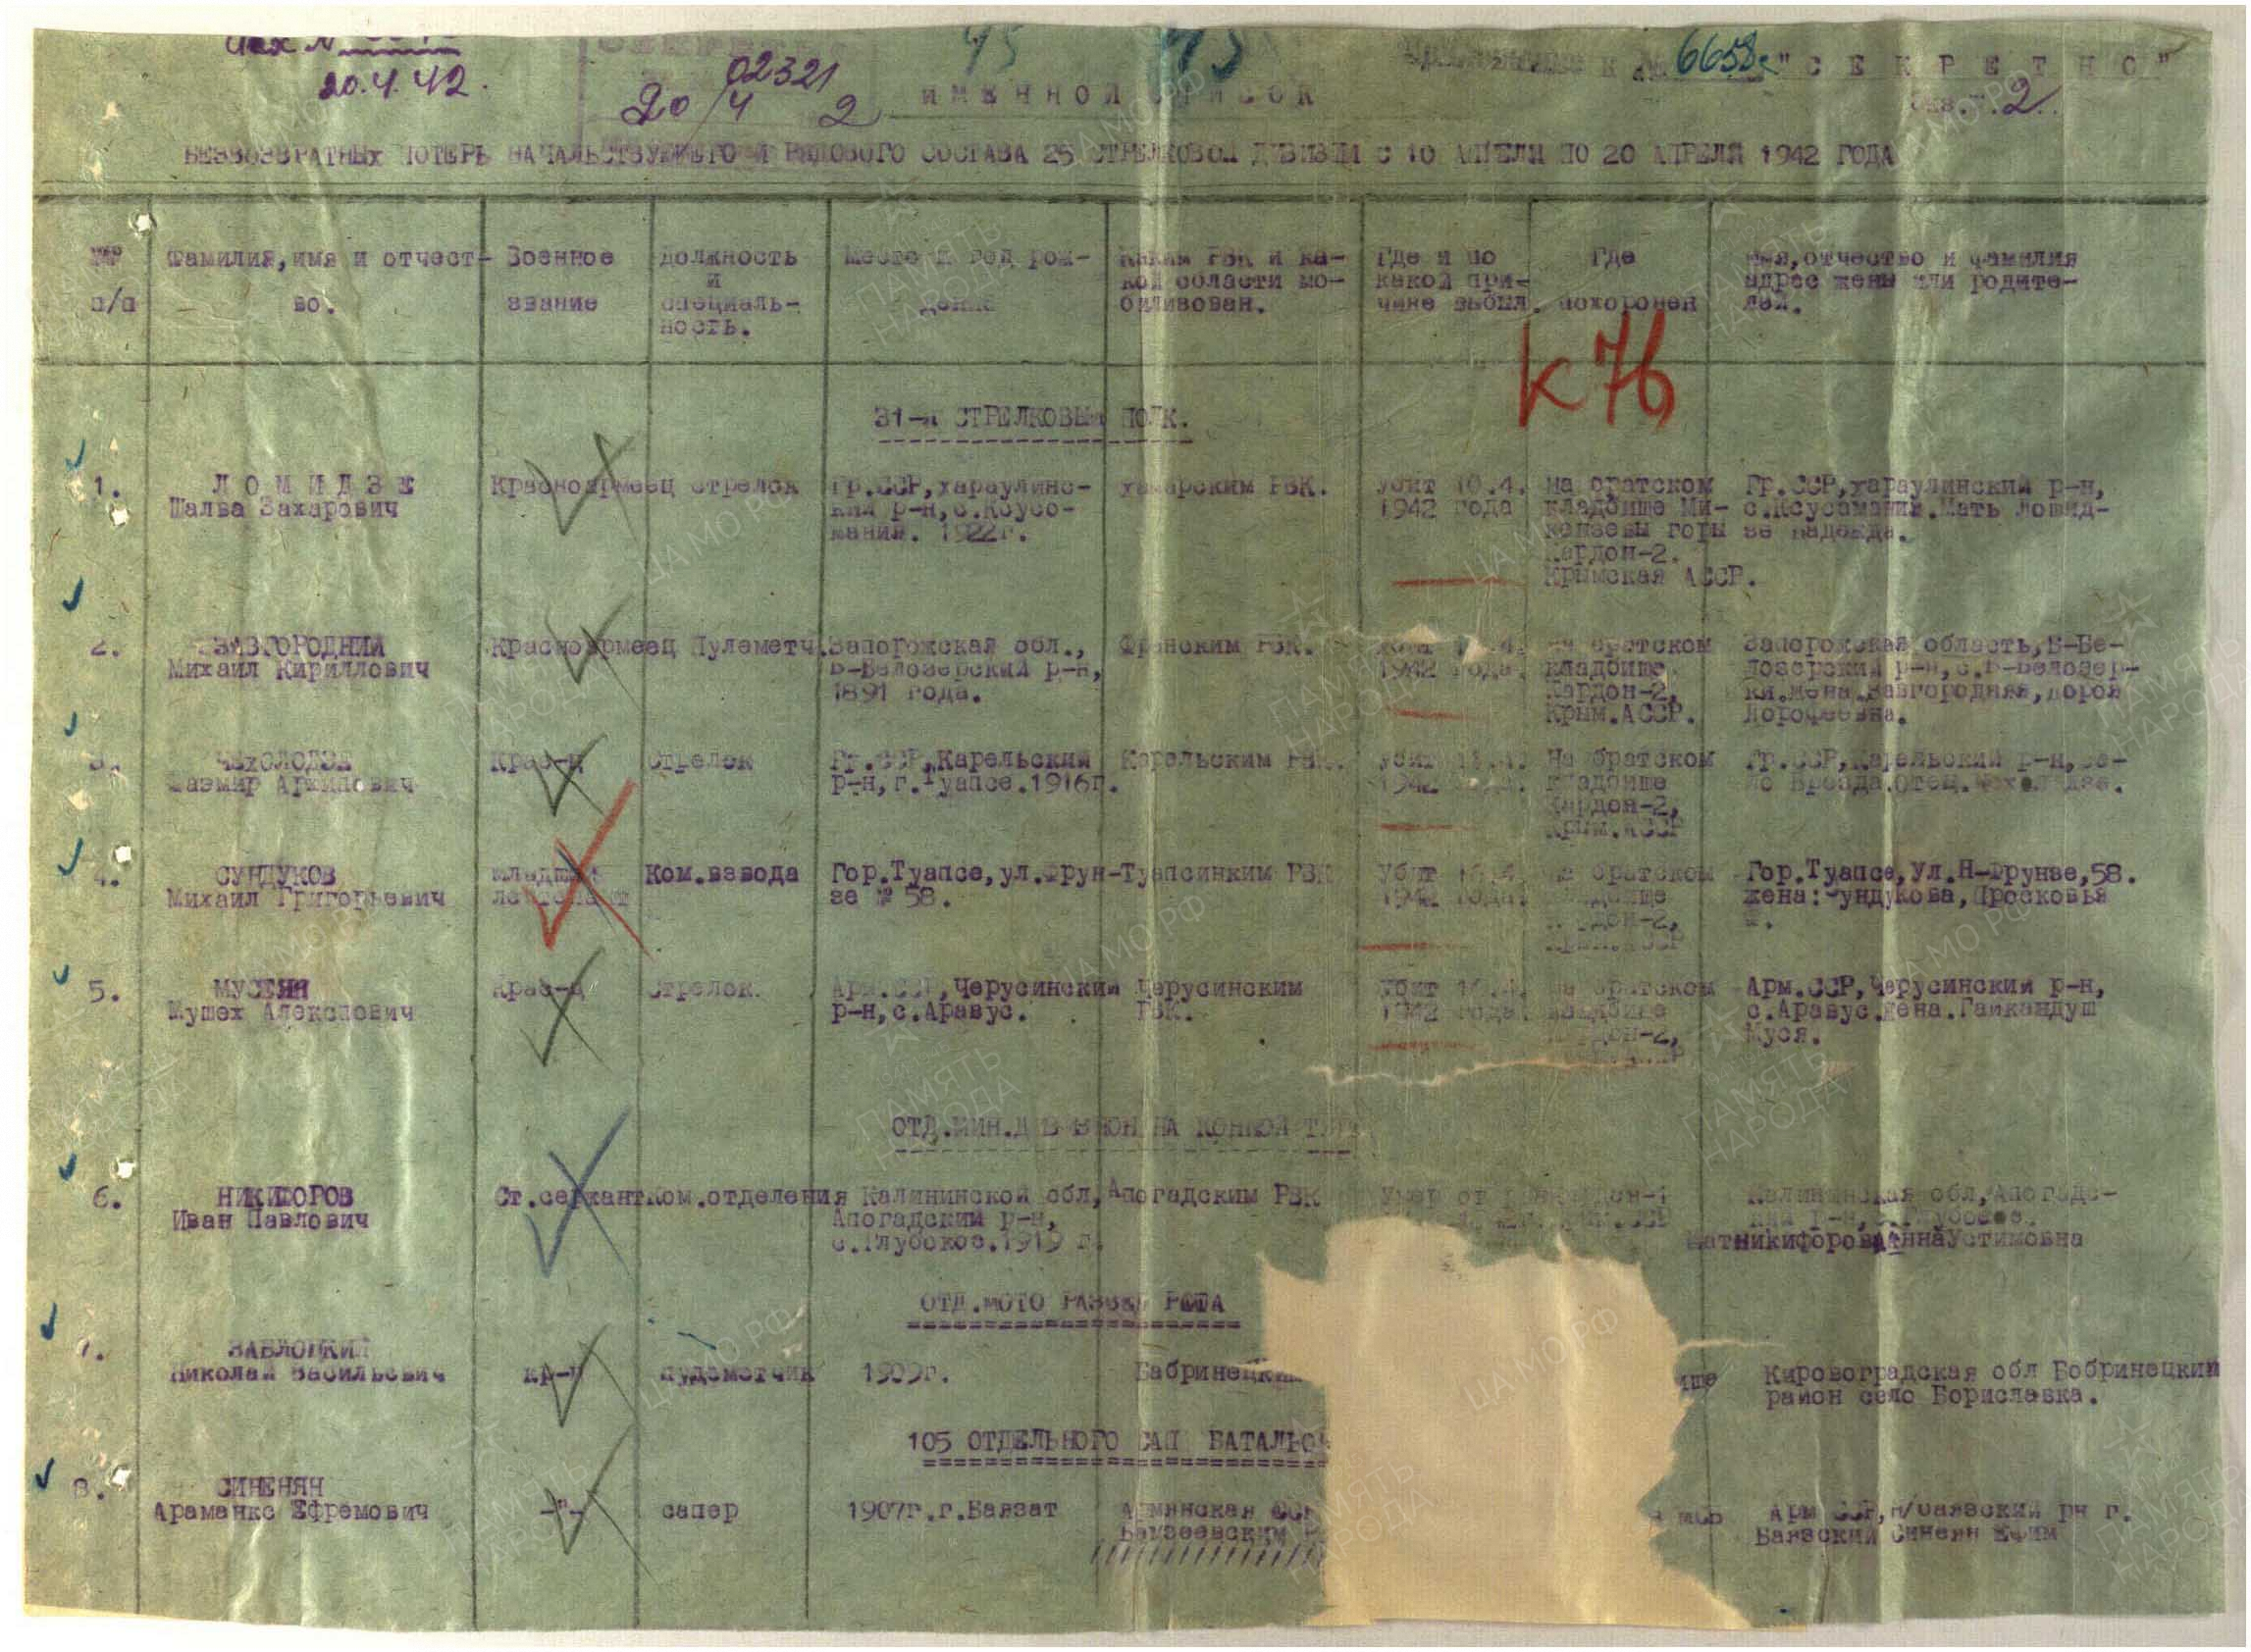 20.4.42.
02321
20/4 2
45
К № 6658с "СЕКРЕТНО"
экз. 2.
ИМЕННОЙ СПИСОК
БЕЗВОЗВРАТНЫХ ПОТЕРЬ НАЧАЛЬСТВУЮЩЕГО И РЯДОВОГО СОСТАВА 25 СТРЕЛКОВОЙ ДИВИЗИИ С 10 АПРЕЛЯ ПО 20 АПРЕЛЯ 1942 ГОДА
№№ п/п
Фамилия, имя и отчест-
во.
Военное
звание
Должность
и
специаль-
ность.
Место и год рож-
дения
Каким РВК и ка-
кой области мо-
билизован.
Где и по
какой при-
чине выбыл.
Где
похоронен
Имя, отчество и фамилия
адрес жены или родите-
лей.
К76
31-й СТРЕЛКОВЫЙ ПОЛК.
1.
ЛОМИДЗЕ
Шалва Захарович
Красноармеец
стрелок
Гр.ССР, хараулинс-
кий р-н, с.Ксусо-
мания. 1922г.
РВК.
Убит 10.4.
1942 года
на братском
кладбище Ми-
кензевы горы
Кардон-2.
Крымская АССР.
Гр.ССР, хараулинский р-н,
с.Ксусамания. Мать ломид-
зе надежда.
2.
ЗАВГОРОДНИЙ
Михаил Кириллович
Красноармеец
Пулеметч.
Запорожская обл.,
Б-Белозерский р-н,
1891 года.
РВК.
1942 года
на братском
кладбище
Кардон-2,
Крым.АССР.
Запорожская область, Б-Бе-
лозерский р-н, с.Б-Белозер-
ки. жена Завгородняя,
Дорофеевна.
3.
Архипович
Крас-ц
Стрелок
Гр.ССР, Карельский
р-н, г.Туапсе. 1916г.
Карельским РВК.
Убит
1942
На братском
кладбище
Кардон-2,
Крым.АССР
Гр.ССР, Карельский р-н, се-
ло Отец.
4.
СУНДУКОВ
Михаил Григорьевич
младший
лейтенант
Ком.взвода
Гор.Туапсе, ул.Фрун-
зе № 58.
Туапсинким РВК
Убит
1942 года.
на братском
кладбище
Кардон-2,
Крым.АССР
Гор.Туапсе, Ул.Н-Фрунзе, 58.
жена: Сундукова, Просковья
5.
МУСЕЯН
Мушех Алексиович
Крас-ц
Стрелок.
Арм.ССР, Черусинский
р-н, с.Аравус.
Черусинским
РВК.
Убит
1942 года.
на братском
кладбище
Кардон-2,
Арм.ССР, Черусинский р-н,
с.Аравус. жена. Гайкандуш
Муся.
ОТД.МИН.ДИВИЗИОН НА КОННОЙ
6.
НИКИФОРОВ
Иван Павлович
Ст.сержант
Ком.отделения
Калининской обл,
Апогадский р-н,
с.Глубокое. 1919 г.
Апогадским РВК
Умер от
Калининская обл, Апогадс-
кий р-н, с.Глубокое.
Мать Никифорова Анна Устимовна
ОТД.МОТО РАЗВЕД РОТА
7.
ЗАБЛОЦКИЙ
Николай Васильевич
кр-ц
пулеметчик
1909г.
Бабринецким
ище
Кировоградская обл Бобринецкий
район село Бориславка.
105 ОТДЕЛЬНОГО САП БАТАЛЬОН
8.
СИНЕНЯН
Араманкс Ефремович
-"-
сапер
1907г. г.Баязат
Армянская ССР
Арм ССР, н/баязский рн г.
Баязский Синеян Ефим